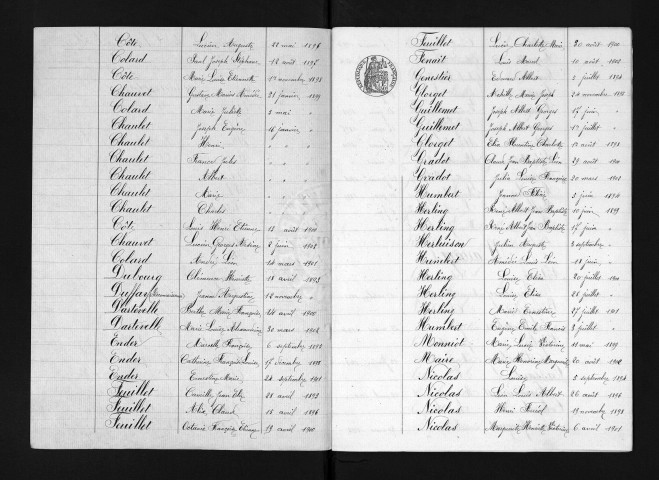 Côte Lucien Auguste 22 mai 1896
Colard Paul Joseph Stéphane 12 août 1895
Côte Marie Louise Etiennette 1er novembre 1898
Chauvet 21 janvier 1899
Colard Marie Juliette 3 mai "
Chaulet Joseph Eugène 16 janvier "
Chaulet Henri " "
Chaulet Francs Jules " "
Chaulet Albert " "
Chaulet Marie " "
Chaulet Charles " "
Côte Louis Henri Etienne 12 août 1900
Chauvet Lucien Georges 2 juin 1902
Colard André Léon 24 mars 1901
Dubourg Henriette 18 avril 1893
Duffay Jeanne Augustine 12 novembre "
Dartevelle Berthe Marie Françoise 24 avril 1900
Dartevelle Marie Louise 30 mars 1902
Ender Marcelle Françoise 6 septembre 1892
Ender Catherine Françoise Louise 17 décembre
Ender Ernestine Marie 24 septembre 1901
Feuillet Camille Jean Elie 28 avril 1893
Feuillet Alix Claude 15 avril 1896
Feuillet Octavie Françoise 19 avril 1900
Feuillet Lucie Charlotte Marie 30 août 1900
Fenoit Louis Marcel 10 août 1902
Genestier Edouard Albert 2 juillet 1894
Glorget Marie Joseph 24 novembre 1898
Guillemet Joseph Albert Georges 17 juin "
Guillemet Joseph Albert Georges 17 juillet "
Glorget Elie Charlotte 12 août 1898
Gradot Claude Jean Baptiste Léon 29 août 1900
Gradot Julia Louise Françoise 20 mars 1902
Humbert Jeanne 3 juin 1894
Herling René Albert Jean Baptiste 10 juin 1899
Herling René Albert Jean Baptiste 17 juin "
Herluison Julien Auguste 3 septembre "
Humbert Amédée Louis Léon 18 juin "
Herling Louise Elisa 20 juillet 1900
Herling Louise Elise 28 juillet "
Herling Marcel Ernestine 27 juillet 1901
Humbert Eugène Emile Francis 3 juillet "
Monniet Marie Lucie 18 mai 1899
Maire Marie Marguerite 20 août 1902
Nicolas Louise 5 septembre 1894
Nicolas Léon Louis Albert 26 août 1896
Nicolas Henri 19 novembre 1898
Nicolas Marguerite Henriette 6 avril 1901